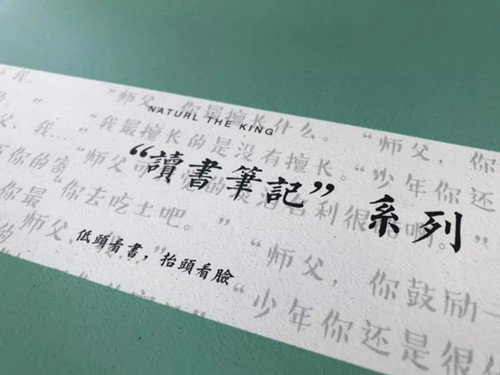 我。 “师父，你最擅长什么。 “师父，你
NATURL THE KING
父，我…” “我最擅长的是没有擅长。” “少年你还
“讀書筆記” 系列
“师父 名利很 啊。”
你最 你去吃土吧。”
低頭看書，抬頭看臉
的师父， “师父，你鼓励一
“少年你还是很